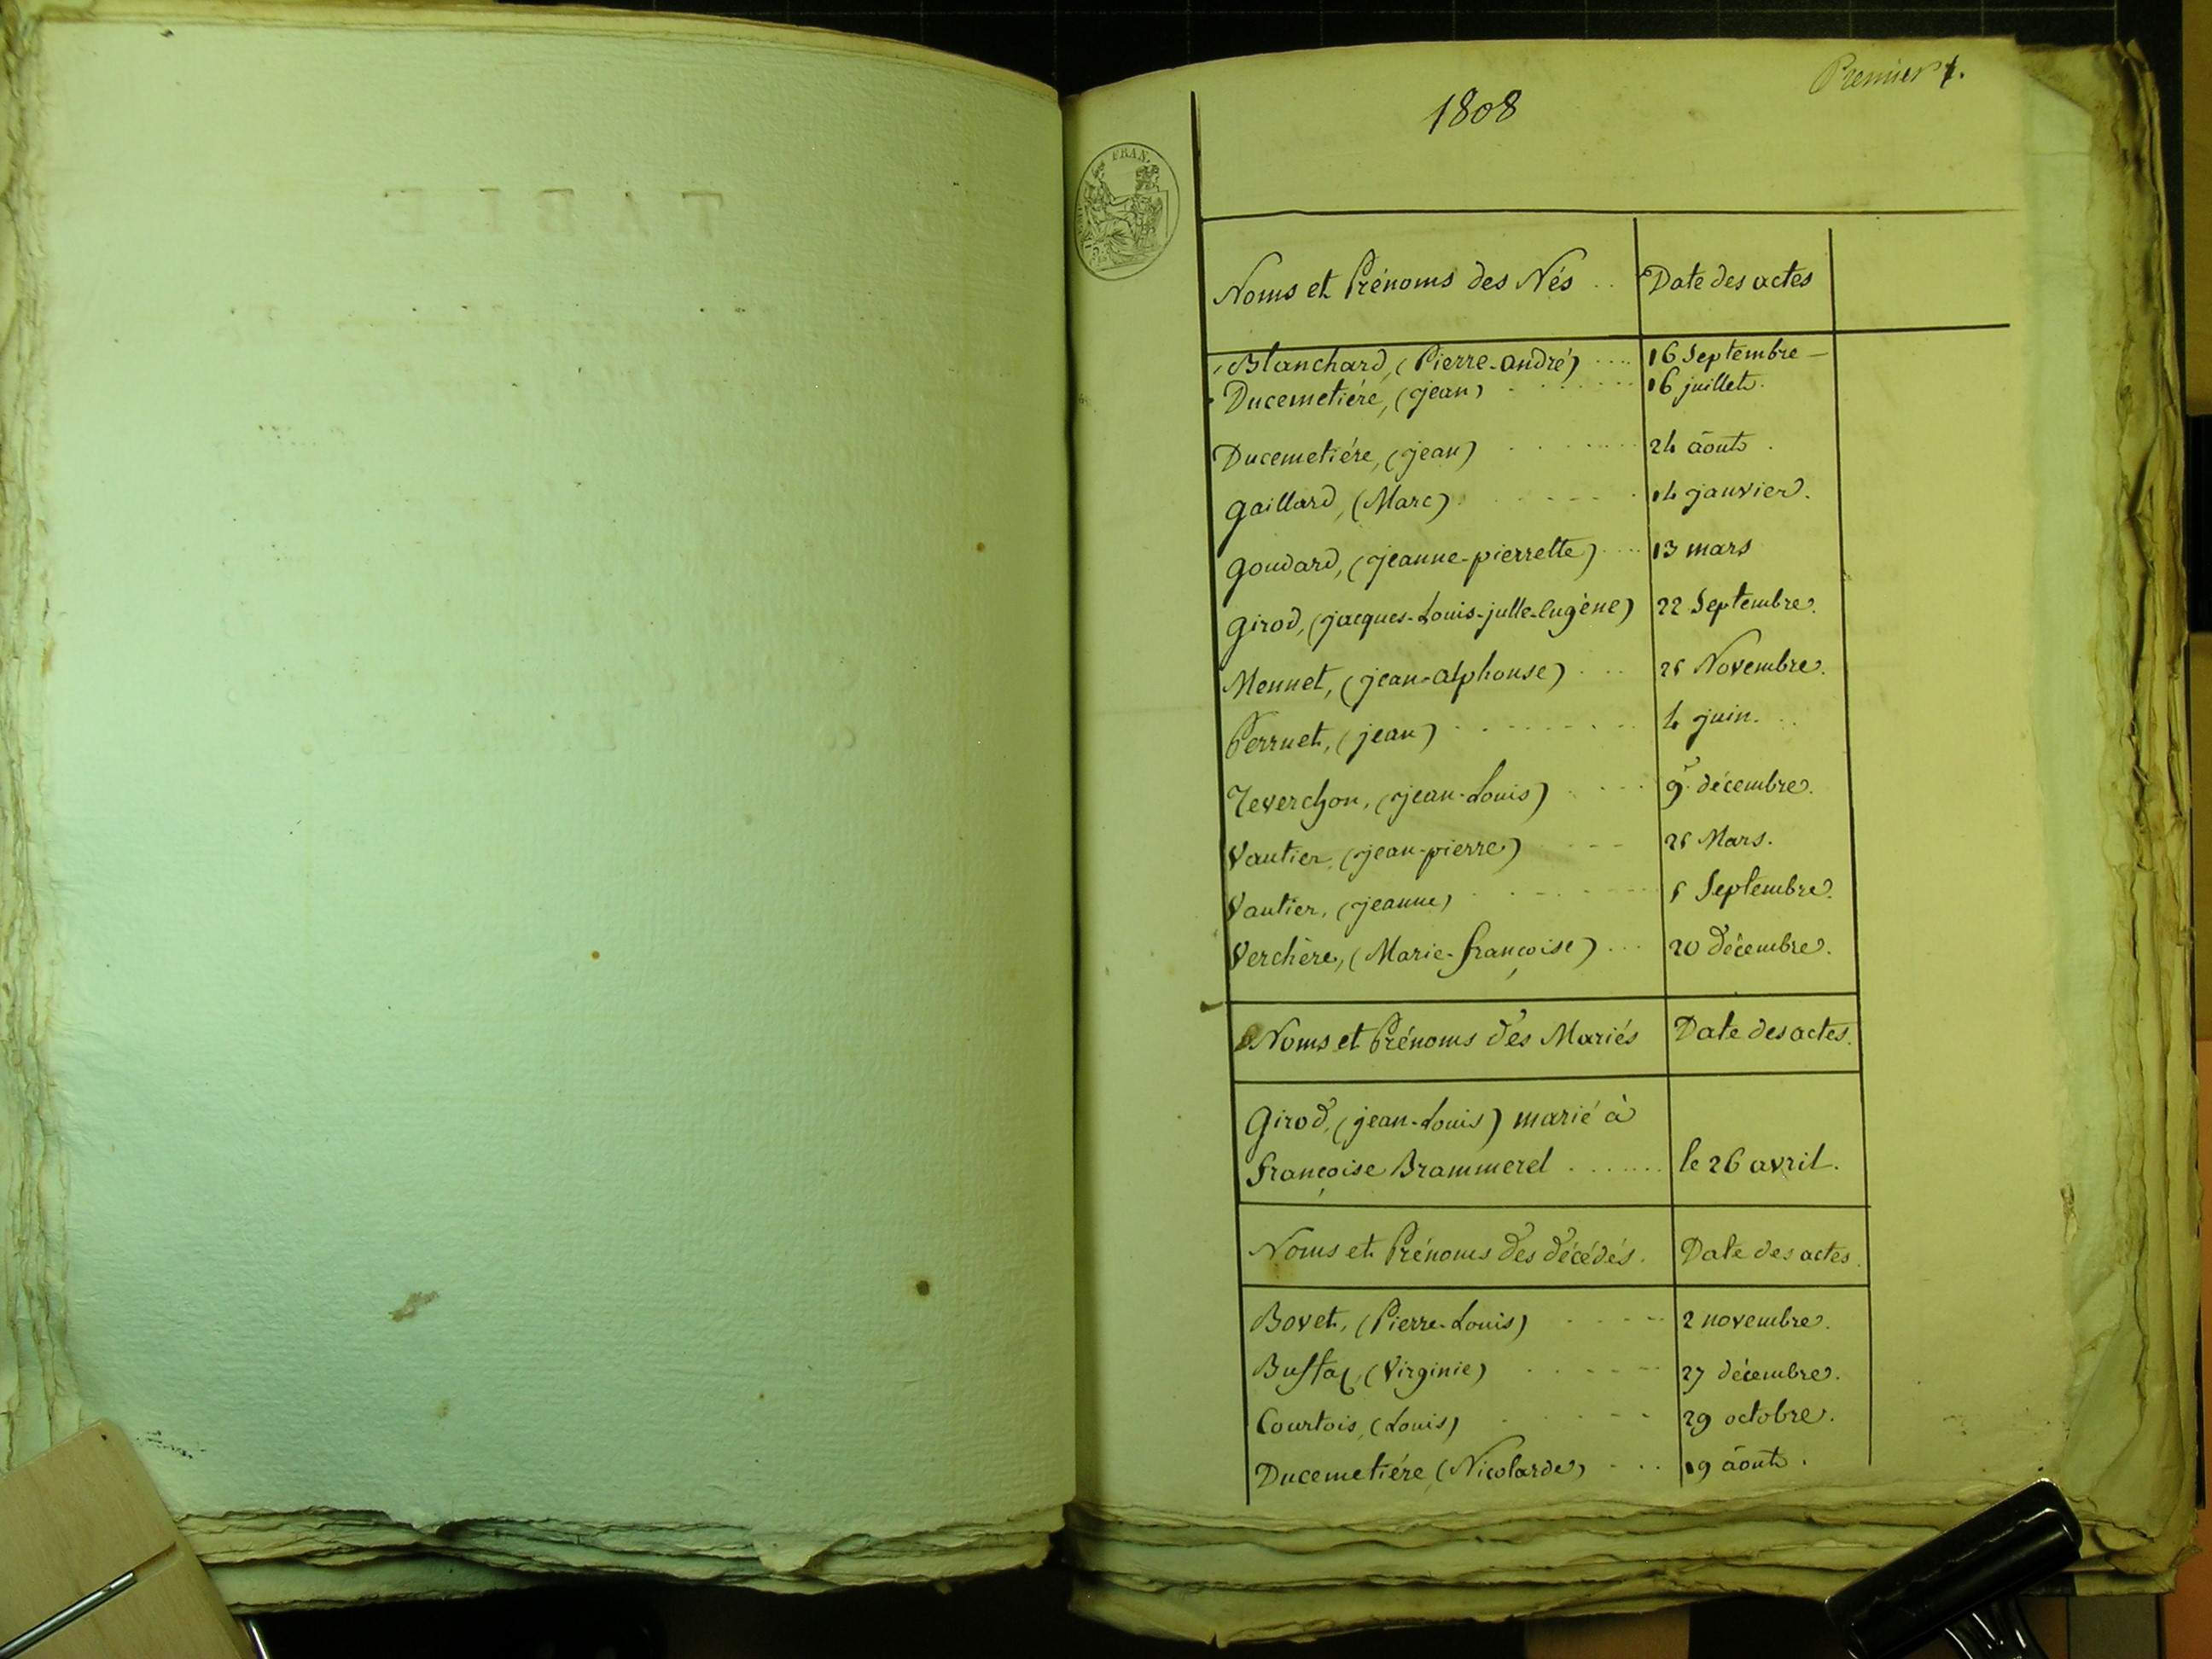 TABLE
Premier 1.
1808
FRAN.
Noms et Prénoms des Nés .. Date des actes
Blanchard, (Pierre-andré) .... 16 Septembre -
Ducemetiére, (jean) ....... 16 juillet.
Ducemetiére, (jean) ....... 24 āout .
Gaillard, (Marc) ..... 14 janvier.
Goudard, (jeanne-pierrette) .... 13 mars
Girod, (jacques-Louis-julle-Eugène) 22 Septembre.
Mennet, (jean-alphonse) .... 25 Novembre.
Perruet, (jean) ........ 4 juin.
Teverchon, (jean-Louis) ..... 9 décembre.
Vautier, (jean-pierre) ... 25 Mars.
Vautier, (jeanne) ....... 5 Septembre.
Verchère, (Marie-françoise) ... 20 décembre.
Noms et Prénoms des Mariés Date des actes.
Girod, (jean-Louis) marié à
françoise Brammerel ....... le 26 avril.
Noms et Prénoms des décédés. Date des actes.
Bovet, (Pierre-Louis) ..... 2 novembre.
(Virginie) ..... 27 décembre.
Courtois, (Louis) ..... 29 octobre.
Ducemetiére (Nicolarde) .... 19 āout .